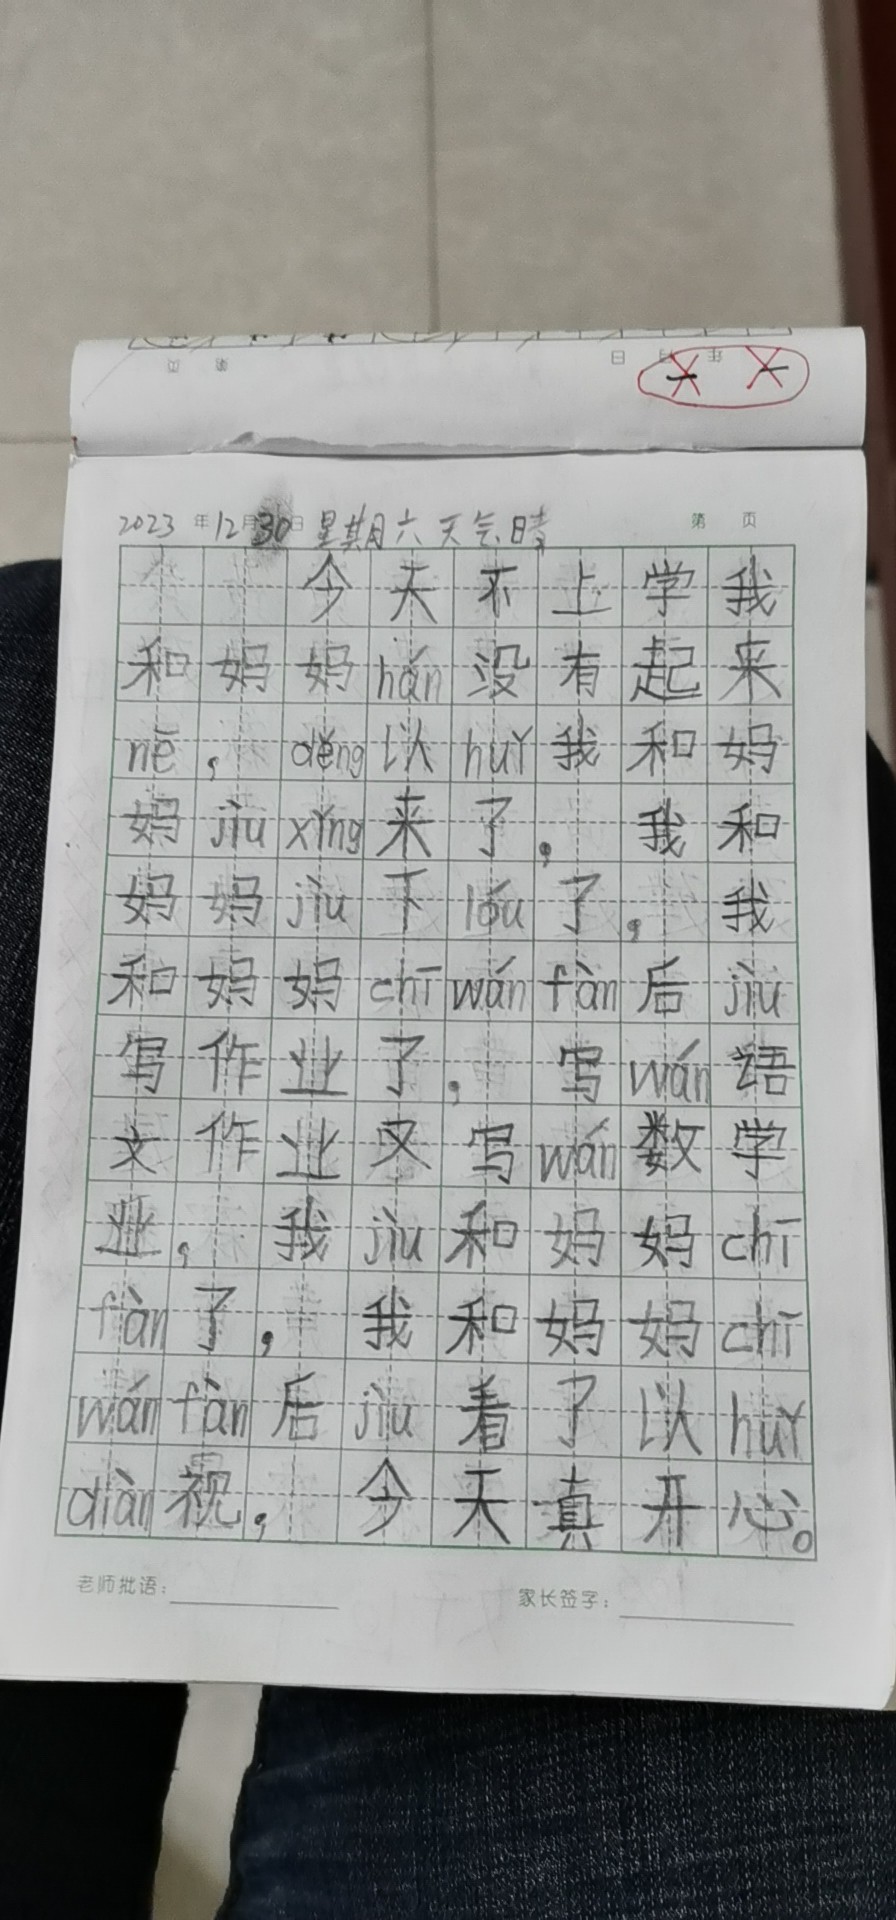 2023年12月30日 星期六 天气晴 第 页
今天不上学我
和妈妈hán没有起来
nē，děng以huǐ我和妈
妈jiùxǐng来了，我和
妈妈jiù下lóu了，我
和妈妈chīwánfàn后jiù
写作业了，写wán语
文作业又写wán数学
业，我jiù和妈妈chī
fàn了，我和妈妈chī
wánfàn后jiù看了以huǐ
diàn视，今天真开心。
老师批语：
家长签字：